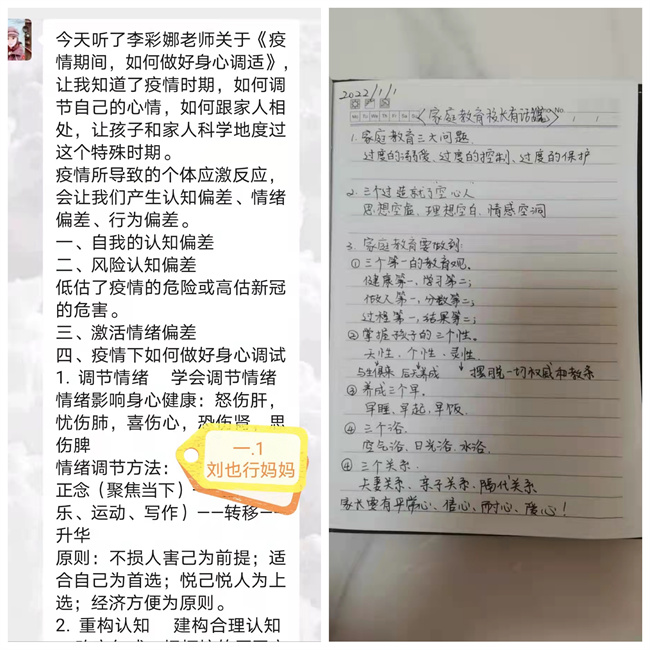 今天听了李彩娜老师关于《疫
情期间，如何做好身心调适》，
让我知道了疫情时期，如何调
节自己的心情，如何跟家人相
处，让孩子和家人科学地度过
这个特殊时期。
疫情所导致的个体应激反应，
会让我们产生认知偏差、情绪
偏差、行为偏差。
一、自我的认知偏差
二、风险认知偏差
低估了疫情的危险或高估新冠
的危害。
三、激活情绪偏差
四、疫情下如何做好身心调试
1. 调节情绪 学会调节情绪
情绪影响身心健康：怒伤肝，
忧伤肺，喜伤心，恐伤肾，思
伤脾
情绪调节方法：
正念（聚焦当下）
乐、运动、写作）——转移——
升华
原则：不损人害己为前提；适
合自己为首选；悦己悦人为上
选；经济方便为原则。
2. 重构认知 建构合理认知
一.1
刘也行妈妈
2022/1/1
Mo Tu We Th Fr Sa Su
《家庭教育校长有话说》
1. 家庭教育三大问题
过度的溺爱、过度的控制、过度的保护
2. 三个过造就了空心人
思想空虚、理想空白、情感空洞
3. 家庭教育要做到:
①三个第一的教育观。
健康第一，学习第二；
做人第一，分数第二；
过程第一，结果第二；
②掌握孩子的三个性。
天性、个性、灵性。
与生俱来 后天养成 摆脱一切权威和教条
③养成三个早。
早睡、早起、早饭。
④三个浴。
空气浴、日光浴、水浴。
④三个关系.
夫妻关系、亲子关系、隔代关系
家长要有平常心、信心、耐心、暖心！